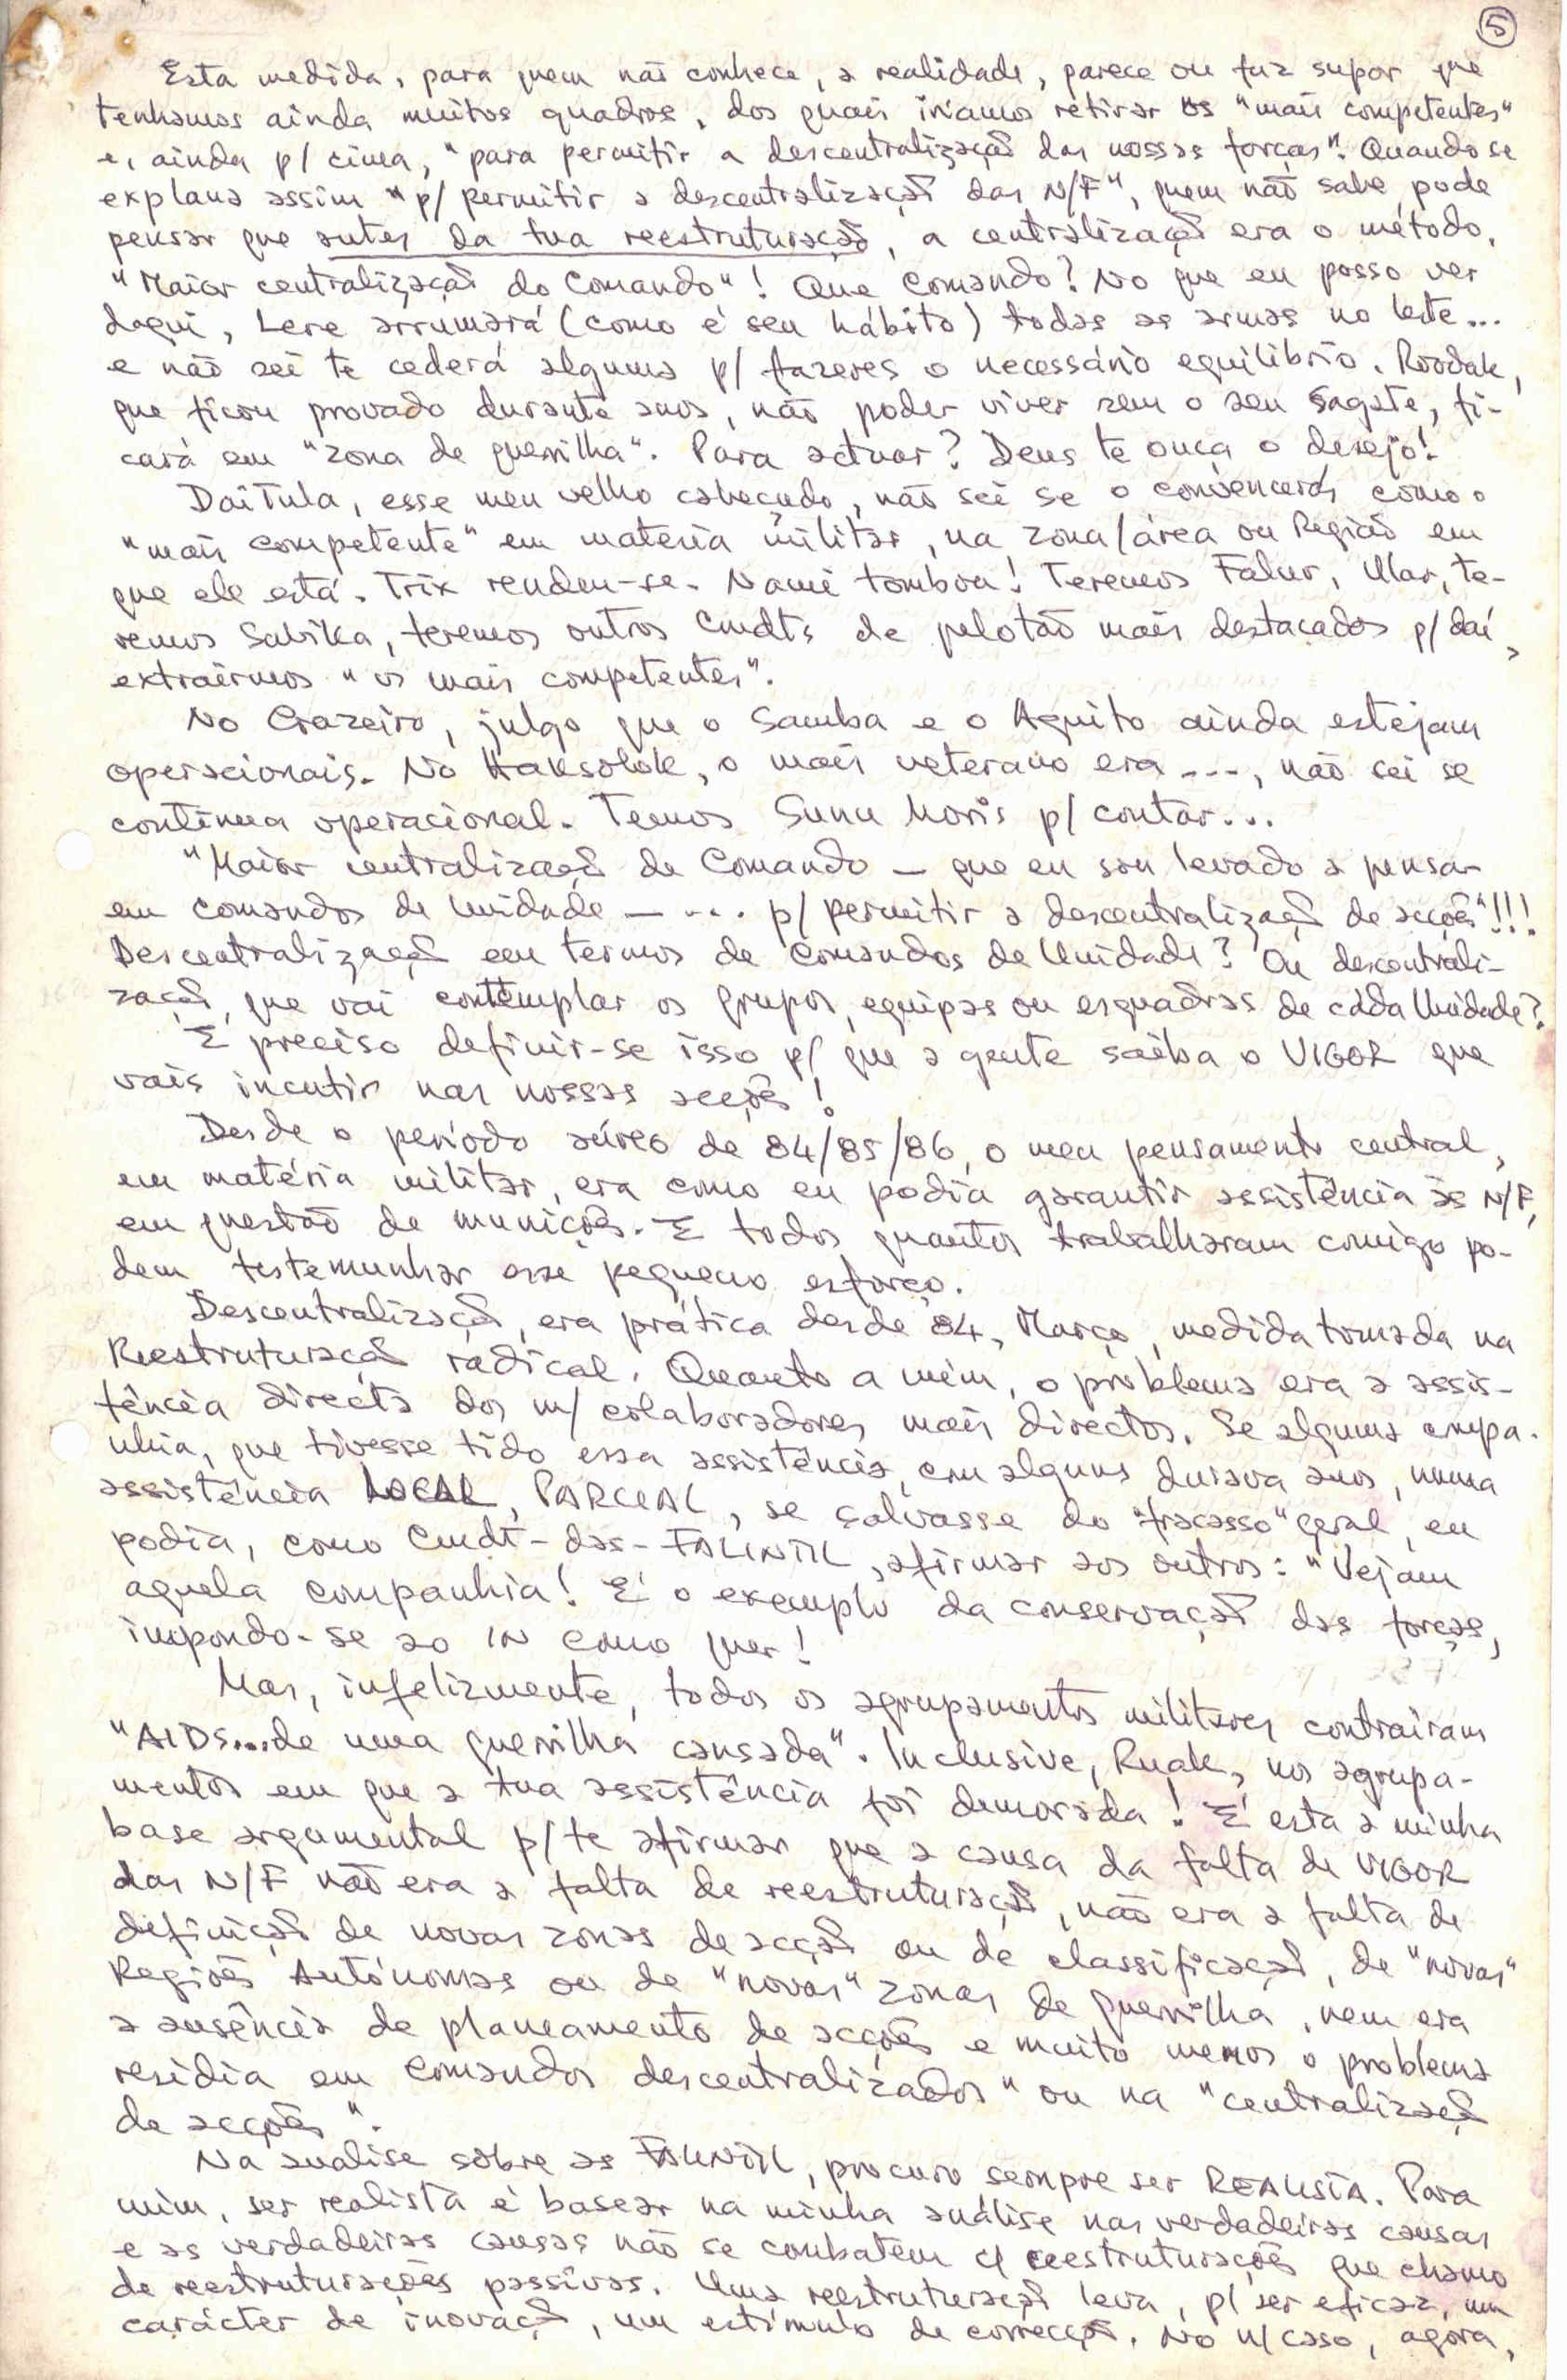 5
Esta medida, para quem não conhece, a realidade, parece ou faz supor que
tenhamos ainda muitos quadros, dos quais iríamos retirar os "mais competentes"
e, ainda p/ cima, "para permitir a descentralização das nossas forças". Quando se
explana assim "p/ permitir a descentralização das N/F", quem não sabe, pode
pensar que antes da tua reestruturação, a centralização era o método.
"Maior centralização do Comando"! Que Comando? No que eu posso ver
daqui, Lere arrumará (como é seu hábito) todas as armas no leste...
e não sei te cederá alguma p/ fazeres o necessário equilíbrio. Roodak,
que ficou provado durante anos, não poder viver sem o seu sagate, fi-
cará em "zona de guerrilha". Para actuar? Deus te ouça o desejo!
Daitula, esse meu velho cabeçudo, não sei se o convencerás como o
"mais competente" em materia militar, na zona/área ou Região em
que ele está. Trix rendeu-se. Namé tombou! Teremos Falur, Ular, te-
remos Sabika, teremos outros Cmdts de pelotão mais destacados p/ daí,
extraírmos "os mais competentes".
No Cruzeiro, julgo que o Samba e o Aquito ainda estejam
operacionais. No Haksolok, o mais veterano era ---, não sei se
continua operacional. Temos Sunu Moris p/ contar...
"Maior centralização de Comando — que eu sou levado a pensar
em comandos de Unidade — ... p/ permitir a descentralização de acções"!!!
Descentralização em termos de Comandos de Unidade? Ou descentrali-
zação, que vai contemplar os grupos, equipas ou esquadras de cada Unidade?
É preciso definir-se isso p/ que a gente saiba o VIGOR que
vais incutir nas nossas acções!
Desde o período áureo de 84/85/86, o meu pensamento central,
em matéria militar, era como eu podia garantir assistência às N/F,
em questão de munições. E todos quantos trabalharam comigo po-
dem testemunhar esse pequeno esforço.
Descentralização, era prática desde 84, Março, medida tomada na
Reestruturação radical. Quanto a mim, o problema era a assis-
tência directa dos m/ colaboradores mais directos. Se alguma compa-
nhia, que tivesse tido essa assistência, em alguns durava anos, numa
assistência LOCAL, PARCIAL, se salvasse do "fracasso" geral, eu
podia, como Cmdt-das-FALINTIL, afirmar aos outros: "Vejam
aquela companhia! É o exemplo da conservação das forças,
impondo-se ao IN como quer!
Mas, infelizmente, todos os agrupamentos militares contrairam
"AIDS...de uma guerrilha cansada". Inclusive, Ruak, nos agrupa-
mentos em que a tua assistência foi demorada! É esta a minha
base argumental p/ te afirmar que a causa da falta de VIGOR
das N/F não era a falta de reestruturação, não era a falta de
definição de novas zonas de acção ou de classificação, de "novas"
Regiões Autónomas ou de "novas" zonas de guerrilha, nem era
a ausência de planeamento de acções e muito menos o problema
residia em Comandos descentralizados" ou na "centralização
de acções".
Na analise sobre as FALINTIL, procuro sempre ser REALISTA. Para
mim, ser realista é basear na minha análise nas verdadeiras causas
e as verdadeiras causas não se combatem c/ reestruturações que chamo
de reestruturações passivas. Uma reestruturação leva, p/ ser eficaz, um
carácter de inovação, um estímulo de correcção. No n/ caso, agora,